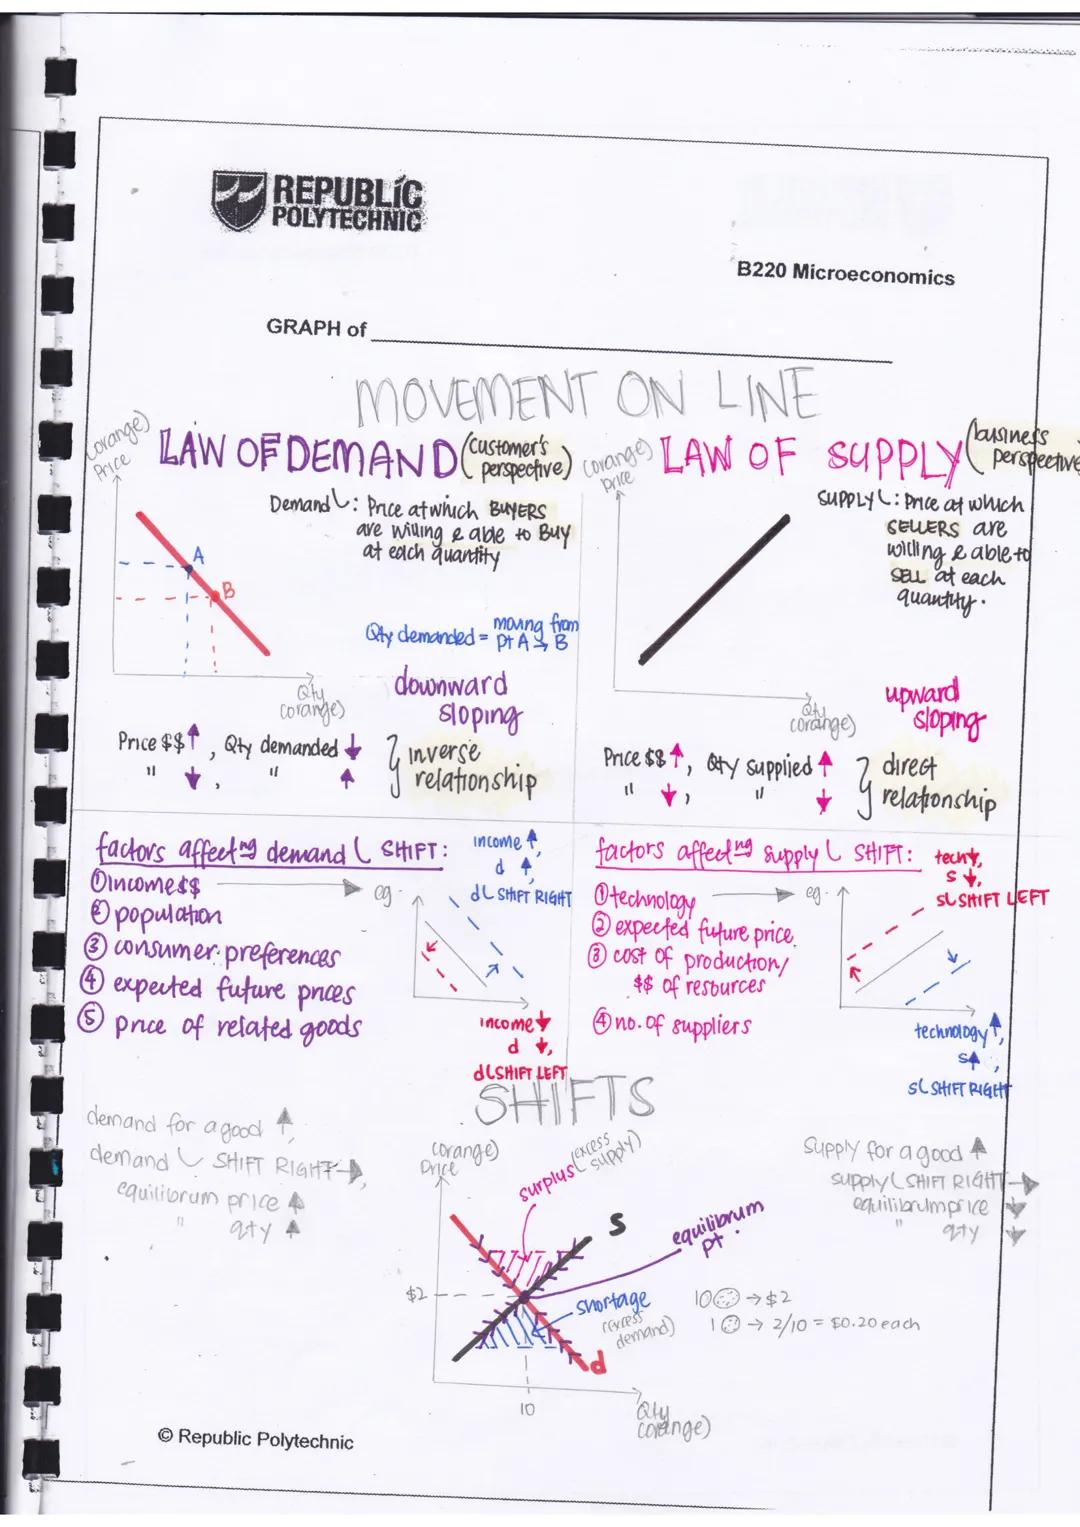 REPUBLIC
POLYTECHNIC
B220 Microeconomics
GRAPH of
MOVEMENT ON LINE
(orange)
Price
LAW OF DEMAND (customer's perspective)
Demand L: Price at which BUYERS
are willing & able to BUY
at each quantity
A
B
Qty demanded = moving from
pt A → B
downward
sloping
Qty
(orange)
Price $$ ↑, Qty demanded ↓
" ↓, " ↑
} inverse
relationship
(orange)
Price
LAW OF SUPPLY (business perspective)
SUPPLY L: Price at which
SELLERS are
willing & able to
SELL at each
quantity.
upward
sloping
Qty
(orange)
Price $$ ↑, Qty supplied ↑
" ↓, " ↓
} direct
relationship
factors affecting demand L SHIFT:
① income $$
② population
③ consumer preferences
④ expected future prices
⑤ price of related goods
eg.
income ↑,
d ↑,
dL SHIFT RIGHT
income ↓
d ↓,
dL SHIFT LEFT
factors affecting supply L SHIFT:
① technology
② expected future price
③ cost of production/
$$ of resources
④ no. of suppliers
eg.
tech ↓,
s ↓,
sL SHIFT LEFT
technology ↑,
s ↑,
sL SHIFT RIGHT
SHIFTS
demand for a good ↑,
demand L SHIFT RIGHT →,
equilibrum price ↑
" qty ↑
(orange)
Price
surplus (excess supply)
S
equilibrum
pt.
$2
shortage
(excess
demand)
d
10
Qty
(orange)
10 → $2
1 → 2/10 = $0.20 each
Supply for a good ↑
supply L SHIFT RIGHT →
equilibrum price ↓
" qty ↓
© Republic Polytechnic